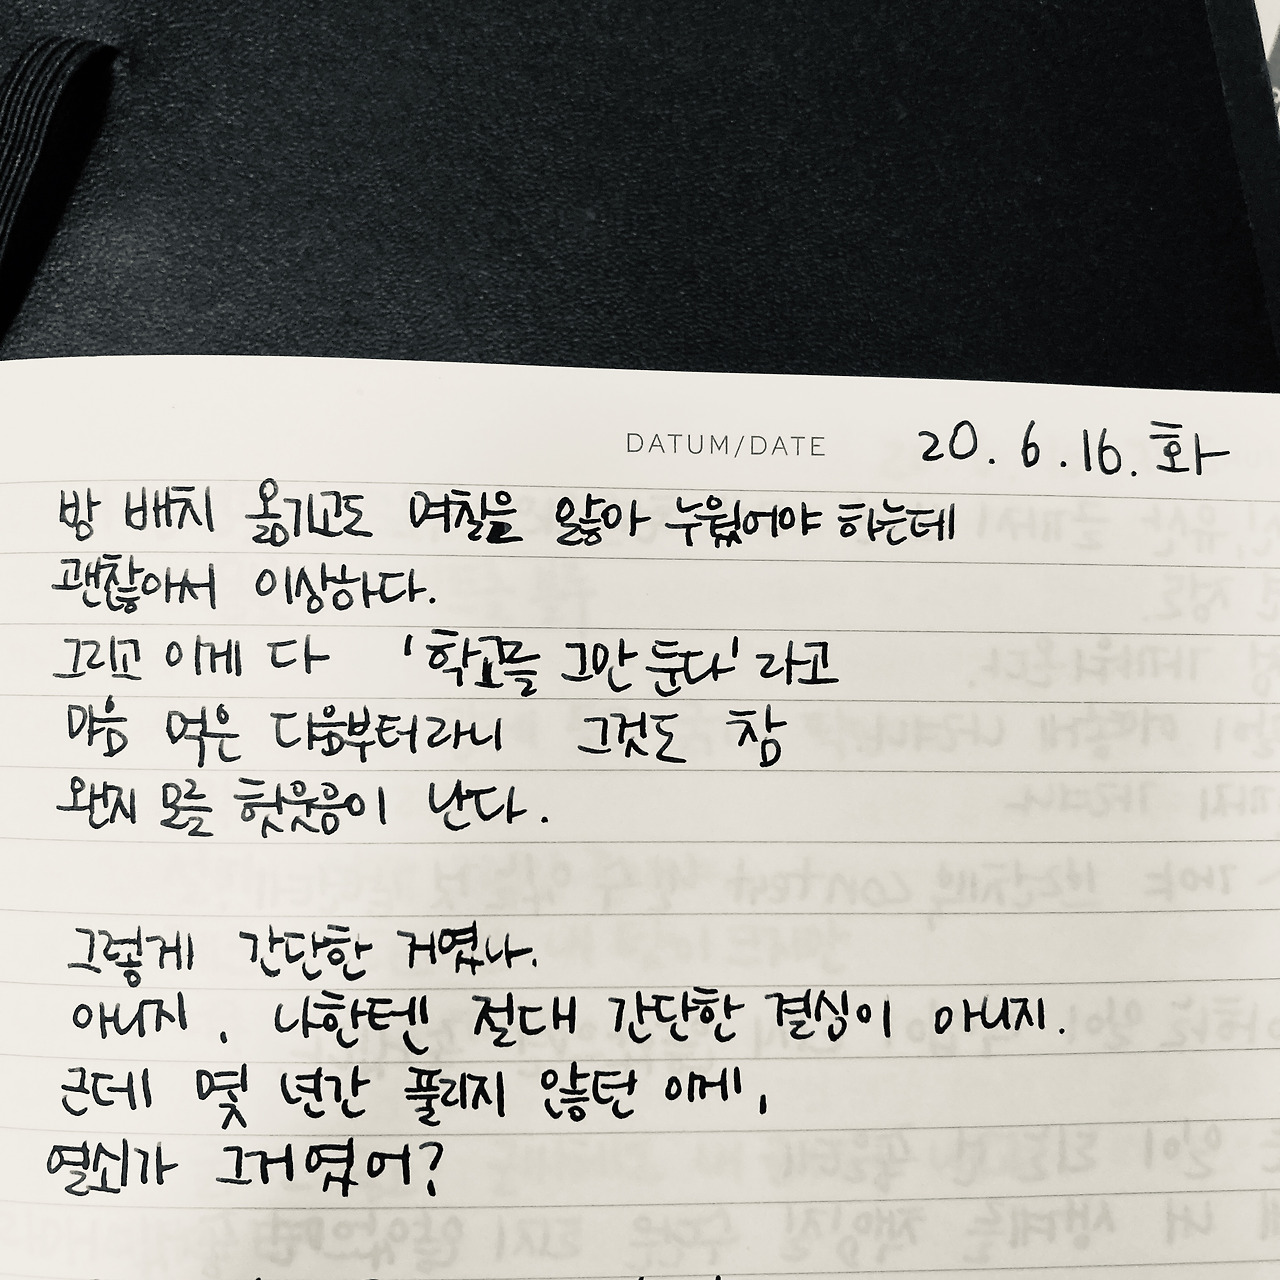 DATUM/DATE 20. 6. 16. 화
방 배치 옮기고도 며칠을 앓아 누웠어야 하는데
괜찮아서 이상하다.
그리고 이게 다 '학교를 그만 둔다' 라고
마음 먹은 다음부터라니 그것도 참
왠지 모를 헛웃음이 난다.
그렇게 간단한 거였나.
아니지, 나한텐 절대 간단한 결심이 아니지.
근데 몇 년간 풀리지 않던 이게,
열쇠가 그거였어?